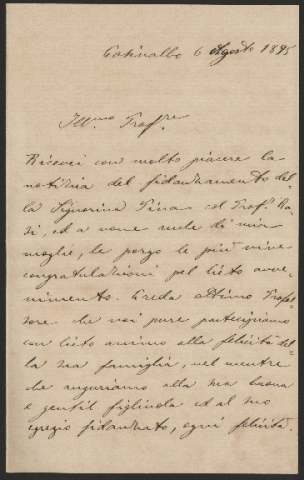 Casinalbo 6 Agosto 1895
Ill.mo Prof.re
Ricevei con molto piacere la
notizia del fidanzamento del=
la Signorina Pina col Prof.
ed a nome anche di mia
moglie, le porgo le più vive
congratulazioni pel lieto avve=
nimento. Creda ottimo Profes=
sore che noi pure partecipiamo
con lieto animo alla felicità del=
la sua famiglia, nel mentre
che auguriamo alla sua buona
e gentil figliuola ed al suo
egregio fidanzato, ogni felicità.